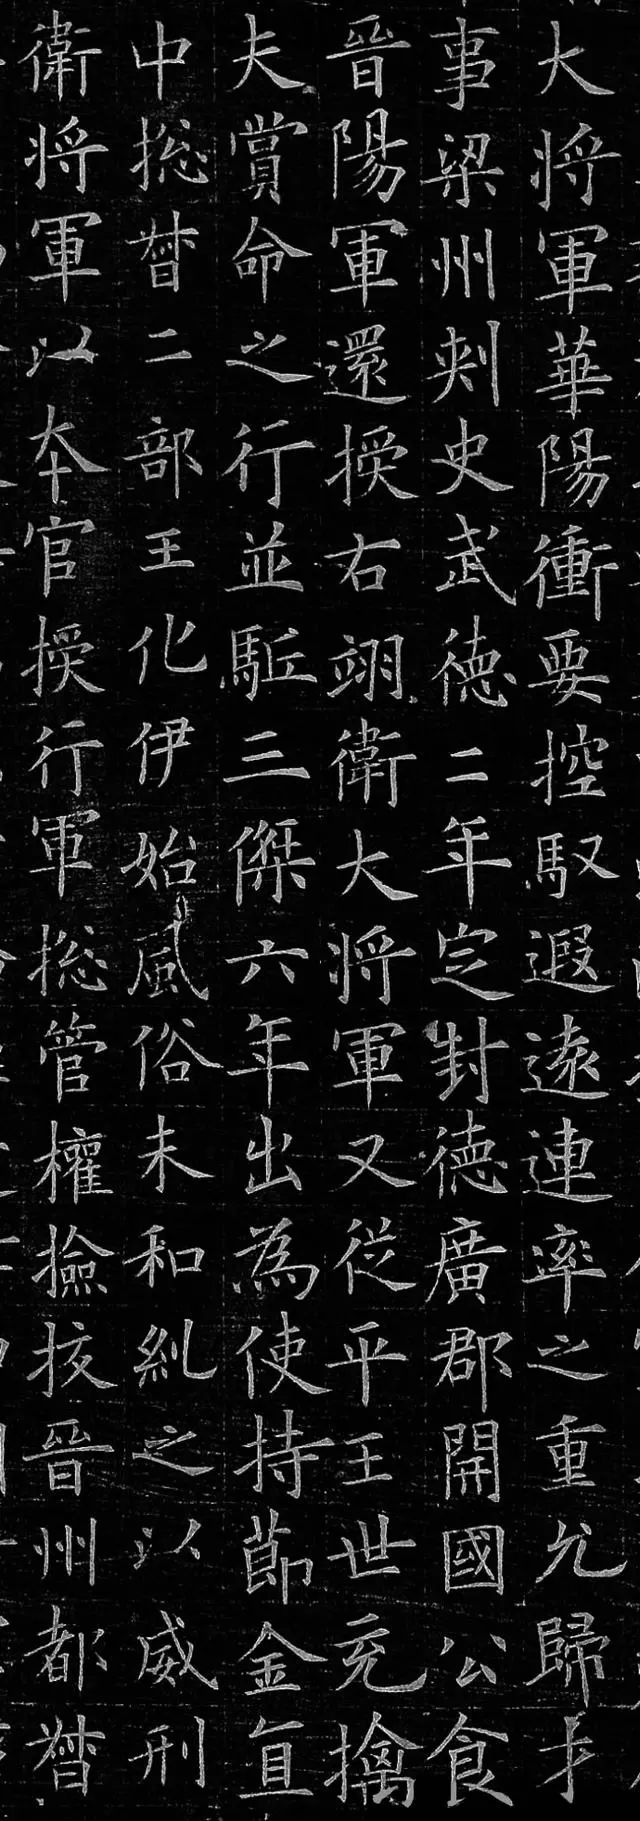 大将軍華陽衝要控馭遐遠連率之重允歸才
事梁州刾史武德二年定封德廣郡開國公食
晉陽軍還授右翊衛大将軍又從平王世充擒
夫賞命之行並駈三傑六年出為使持節金直
中捴督二部王化伊始風俗未和糺之以威刑
衛将軍以本官授行軍捴管權撿挍晉州都督